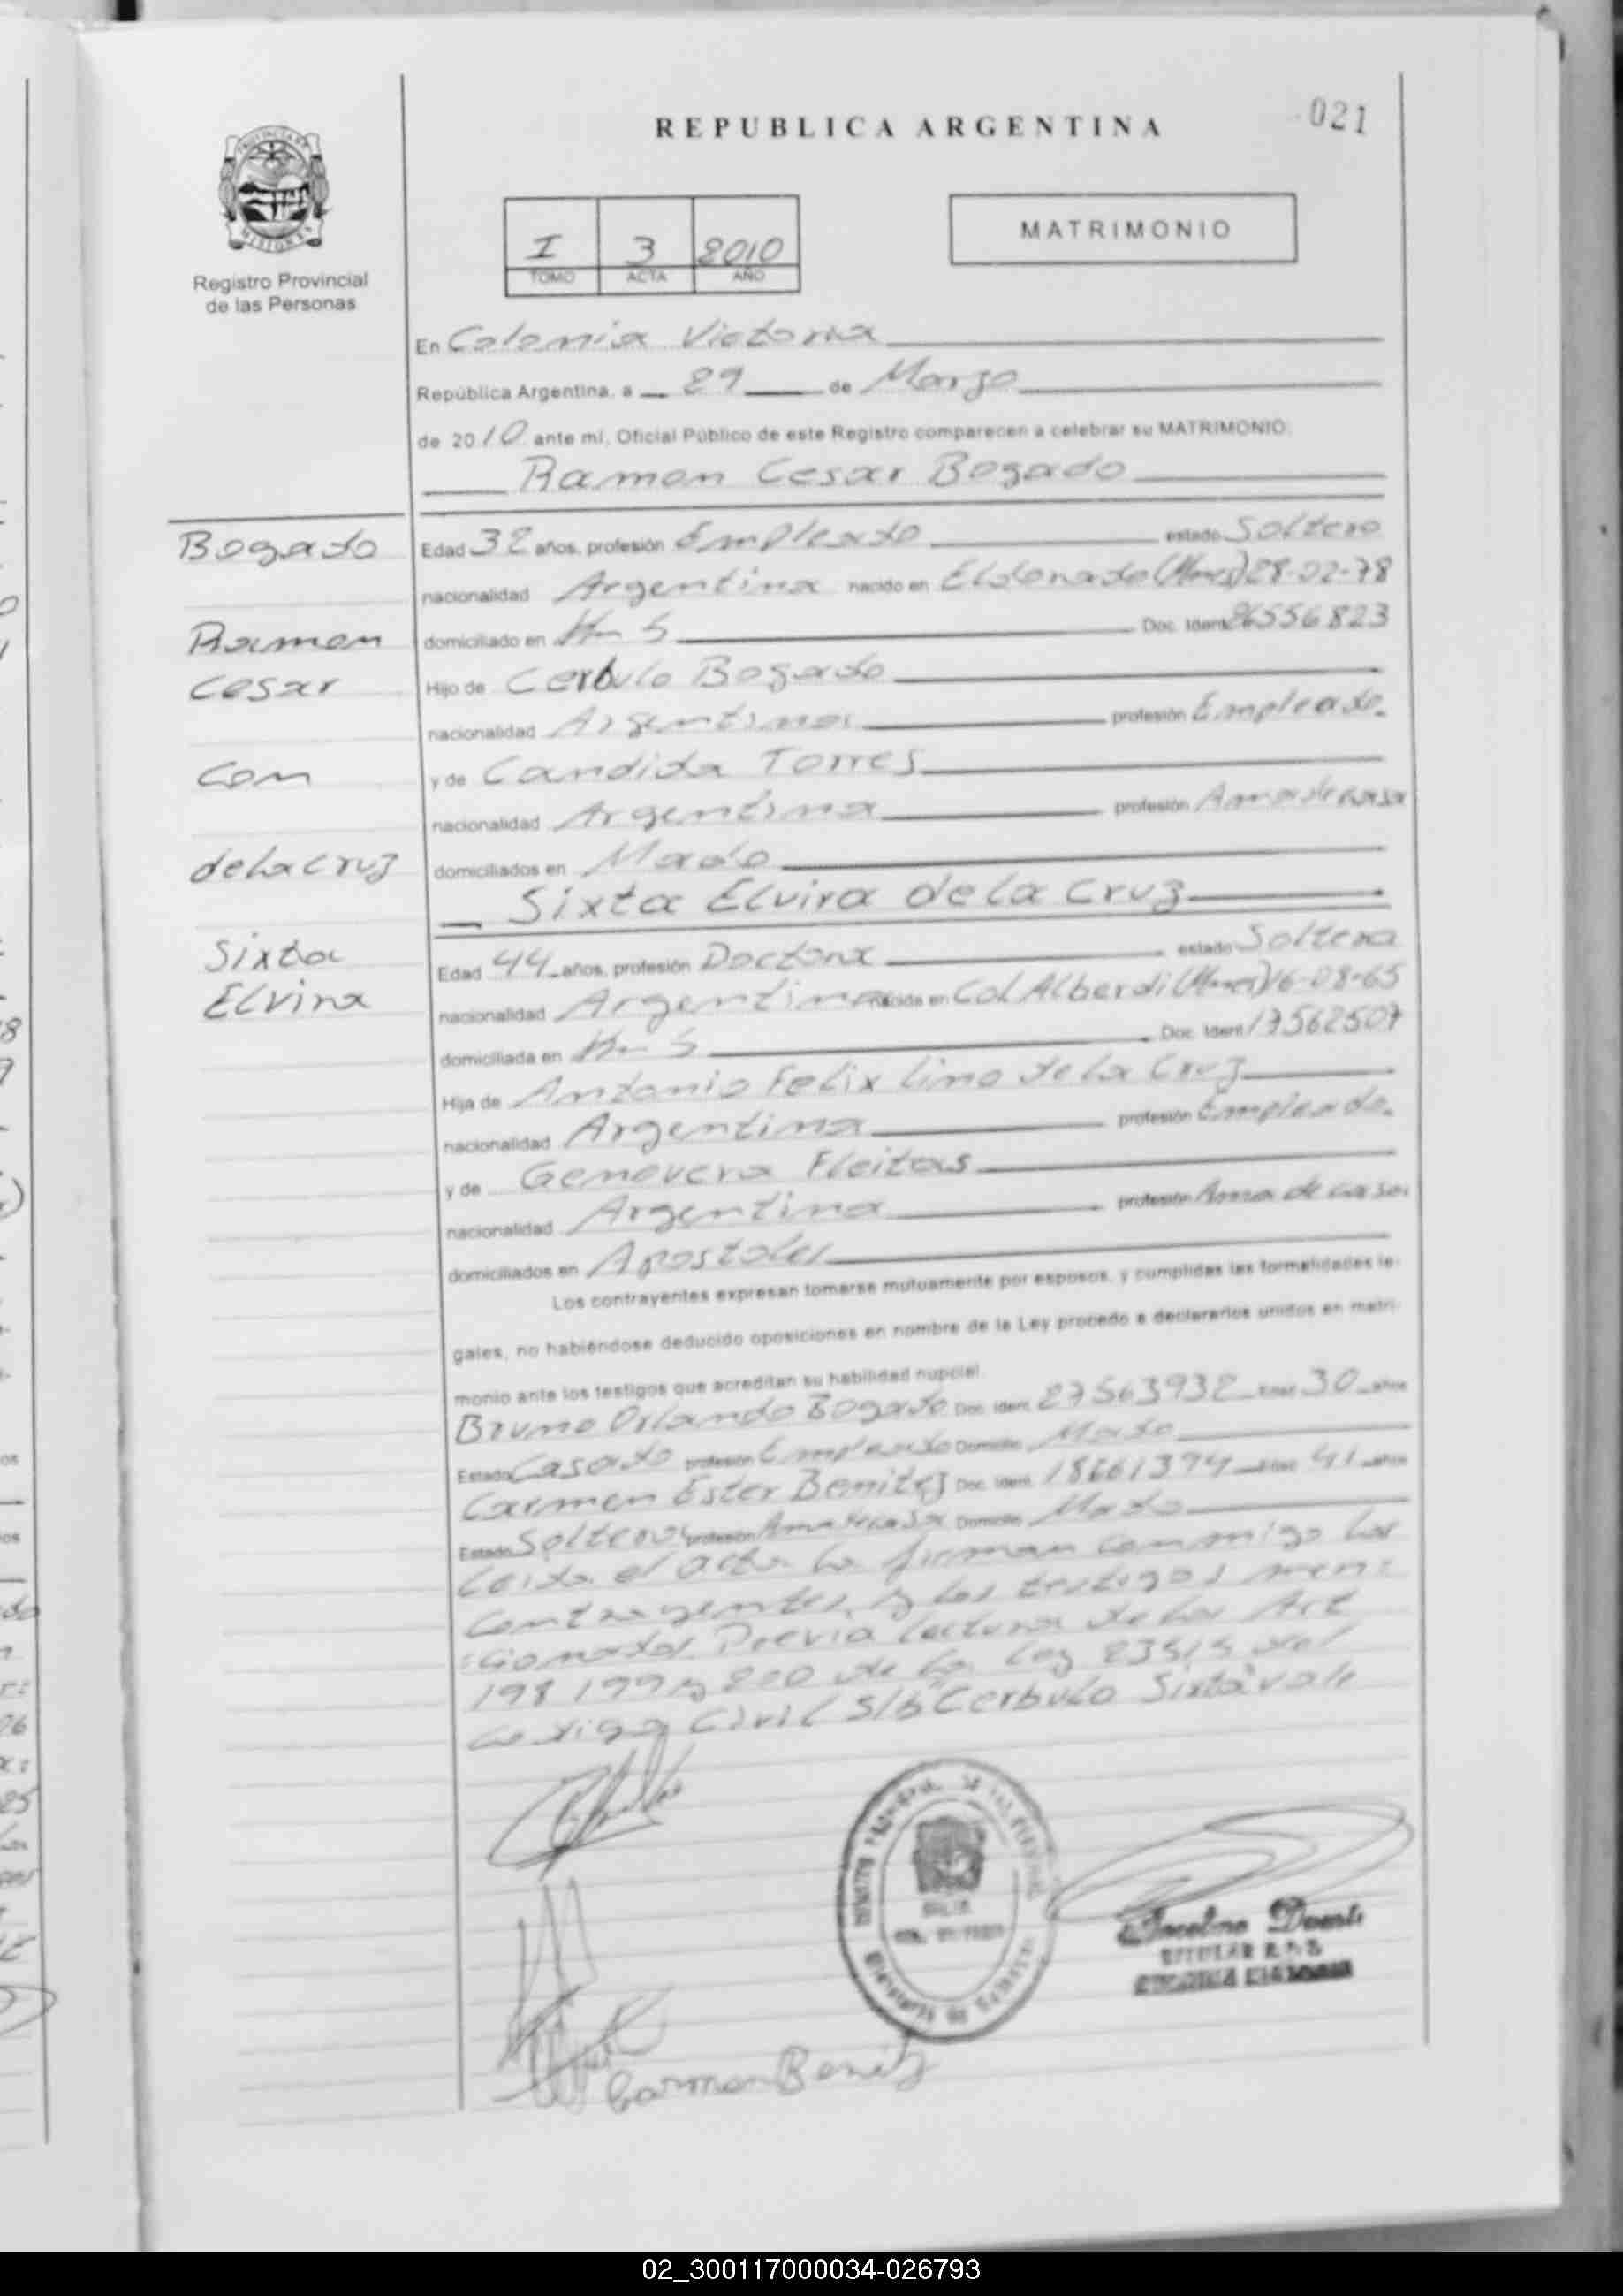 REPUBLICA ARGENTINA
021
I 3 2010
TOMO ACTA AÑO
MATRIMONIO
PROVINCIA DE
MISIONES
Registro Provincial
de las Personas
En Colonia Victoria
República Argentina, a 29 de Marzo
de 2010 ante mí, Oficial Público de este Registro comparecen a celebrar su MATRIMONIO:
Ramon Cesar Bogado
Bogado
Ramon
Cesar
Con
de la Cruz
Sixta
Elvira
Edad 32 años, profesión Empleado estado Soltero
nacionalidad Argentina nacido en Eldorado (Mnes) 28-02-78
domiciliado en Km 5 Doc. Ident. 26556823
Hijo de Cerbulo Bogado
nacionalidad Argentina profesión Empleado
y de Candida Torres
nacionalidad Argentina profesión Ama de casa
domiciliados en Mado
Sixta Elvira de la Cruz
Edad 44 años, profesión Doctora estado Soltera
nacionalidad Argentina nacida en Col Alberdi (Mnes) 16-08-65
domiciliada en Km 5 Doc. Ident. 17562507
Hija de Antonio Felix Lino de la Cruz
nacionalidad Argentina profesión Empleado
y de Genovera Fleitas
nacionalidad Argentina profesión Ama de casa
domiciliados en Apostoles
Los contrayentes expresan tomarse mutuamente por esposos, y cumplidas las formalidades le-
gales, no habiéndose deducido oposiciones en nombre de la Ley procedo a declararlos unidos en matri-
monio ante los testigos que acreditan su habilidad nupcial.
Bruno Orlando Bogado Doc. Ident. 27563932 Edad 30 años
Estado Casado profesión Empleado Domicilio Mado
Carmen Ester Benitez Doc. Ident. 18661394 Edad 41 años
Estado Soltera profesión Ama de casa Domicilio Mado
Leida el acta la firman conmigo los
contrayentes y los testigos men=
=cionados Previa lectura de los Art
198 199 y 200 de la Ley 23515 del
Codigo Civil S/b Cerbulo Sixta vale
Carmen Benitez
02_300117000034-026793